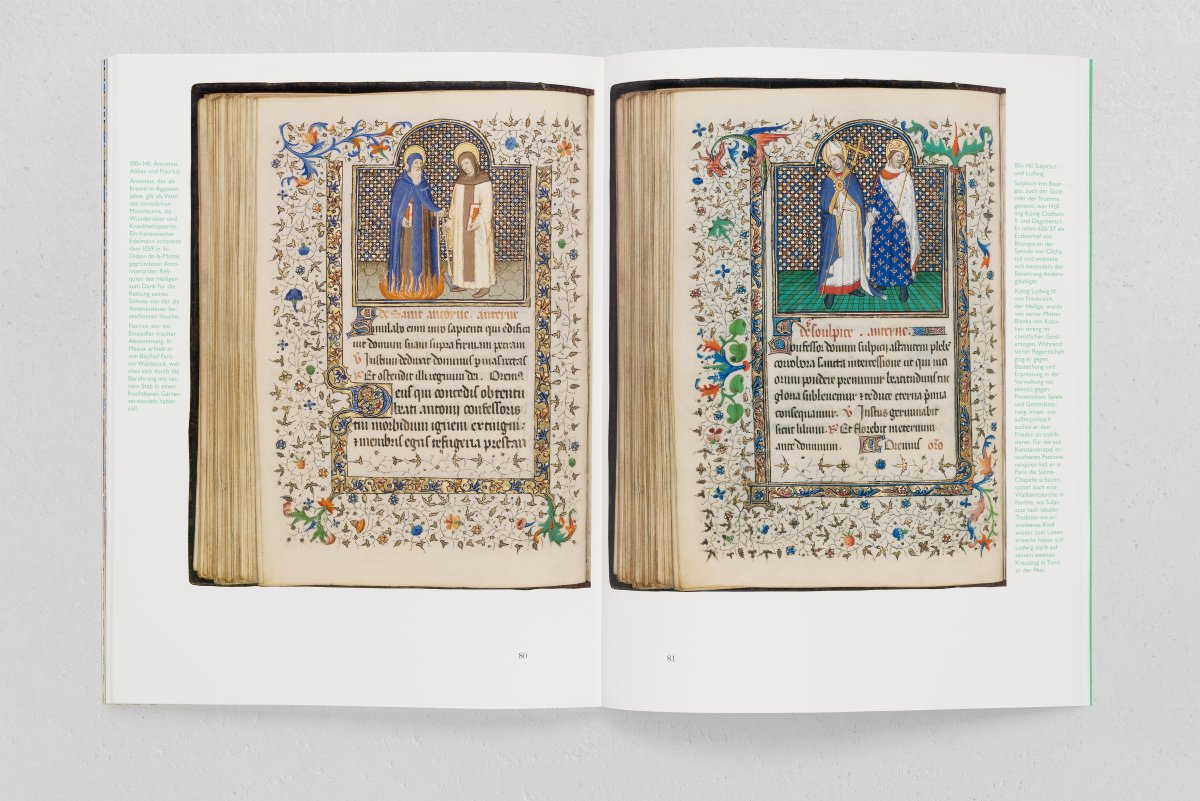 100v Hll. Antonius
Abbas und Fiacrius
Antonius, der als
Eremit in Ägypten
lebte, gilt als Vater
des christlichen
Mönchtums, als
Wundertäter und
Krankheitspatron.
Ein französischer
Edelmann schenkte
dem 1059 in St-
Didier-de-la-Motte
gegründeten Anto-
niterorden Reli-
quien des Heiligen
zum Dank für die
Rettung seines
Sohnes von der als
Antoniusfeuer be-
zeichneten Seuche.
Fiacrius war ein
Einsiedler irischer
Abstammung. In
Meaux erhielt er
von Bischof Faro
ein Waldstück, wel-
ches sich durch die
Berührung mit sei-
nem Stab in einen
fruchtbaren Garten
verwandelt haben
soll.
de Saint antoyne. anteyne
Similabo eum viro sapienti qui edifica
vit domum suam supra firmam petram
V Justum deduxit dominus p vias rectas
Et ostendit illi regnum dei. Orem9
Deus qui concedis obtentu
beati antonii confessoris
tui morbidum ignem extingui:
& membris egris refrigeria prestari
80
de soulpice. anteyne.
Confessor domini sulpici astantem plebem
corrobora sancta intercessione ut qui vici
orum pondere premimur beatitudinis tue
gloria sublevemur & te duce eterna p̄mia
consequamur. V Justus germinabit
sicut lilium. R Et florebit in eternum
ante dominum. Oremus oro
81
101v Hll. Sulpicius
und Ludwig
Sulpicius von Bour-
ges, auch der Gute
oder der Fromme
genannt, war Höf-
ling König Clothars
II. und Dagoberts I.
Er nahm 626/27 als
Erzbischof von
Bourges an der
Synode von Clichy
teil und widmete
sich besonders der
Bekehrung Anders-
gläubiger.
König Ludwig IX.
von Frankreich,
der Heilige, wurde
von seiner Mutter
Blanka von Kasti-
lien streng im
christlichen Geist
erzogen. Während
seiner Regentschaft
ging er gegen
Bestechung und
Erpressung in der
Verwaltung vor,
ebenso gegen
Prostitution, Spiele
und Gotteslläste-
rung. Innen- wie
außenpolitisch
suchte er den
Frieden zu stabili-
sieren. Für die aus
Konstantinopel er-
worbenen Passions-
reliquien ließ er in
Paris die Sainte-
Chapelle erbauen,
später auch eine
Wallfahrtskirche in
wo Sulpi-
cius nach lokaler
Tradition ein er-
trunkenes Kind
wieder zum Leben
erweckt haben soll.
Ludwig starb auf
seinem zweiten
Kreuzzug in Tunis
an der Pest.